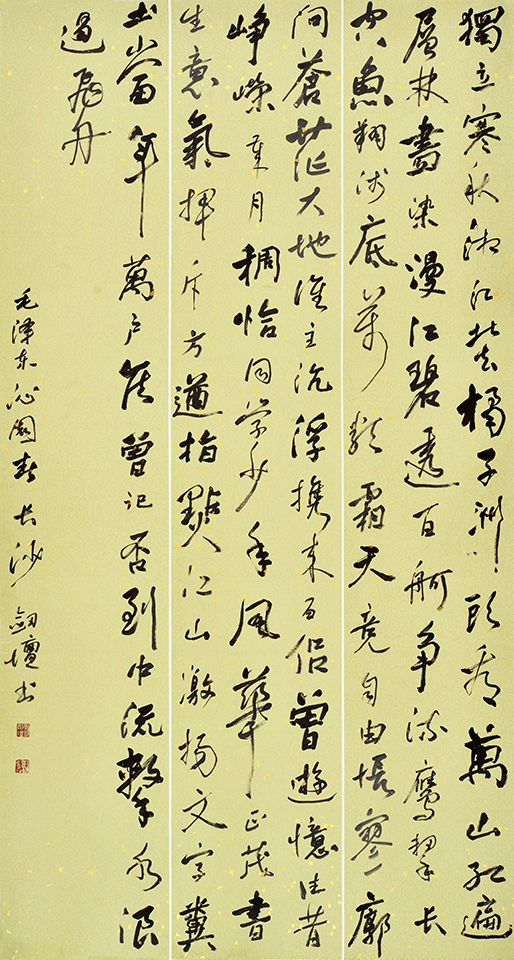 獨立寒秋湘江北去橘子洲頭看萬山紅遍
層林盡染漫江碧透百舸爭流鷹擊長
空魚翔淺底萬類霜天競自由悵寥廓
問蒼茫大地誰主沉浮携來百侶曾遊憶往昔
崢嶸歲月稠恰同學少年風華正茂書
生意氣揮斥方遒指點江山激揚文字糞
土當年萬戶侯曾記否到中流擊水浪
遏飛舟
毛澤東沁園春長沙 劍壇書